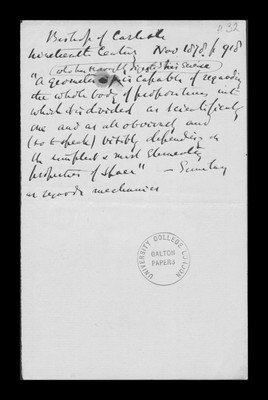 p. 32
Bishop of Carlisle
Nineteenth Century Nov 1878. p 918
(who has recently
"A geometer is capable of regarding
the whole body of propositions into
which it is divided as scientifically
one and as all obviously and
(so to speak) visibly depending on
the simplest & most elementary
properties of space" — Similarly
as regards mechanics
UNIVERSITY COLLEGE LONDON
GALTON
PAPERS